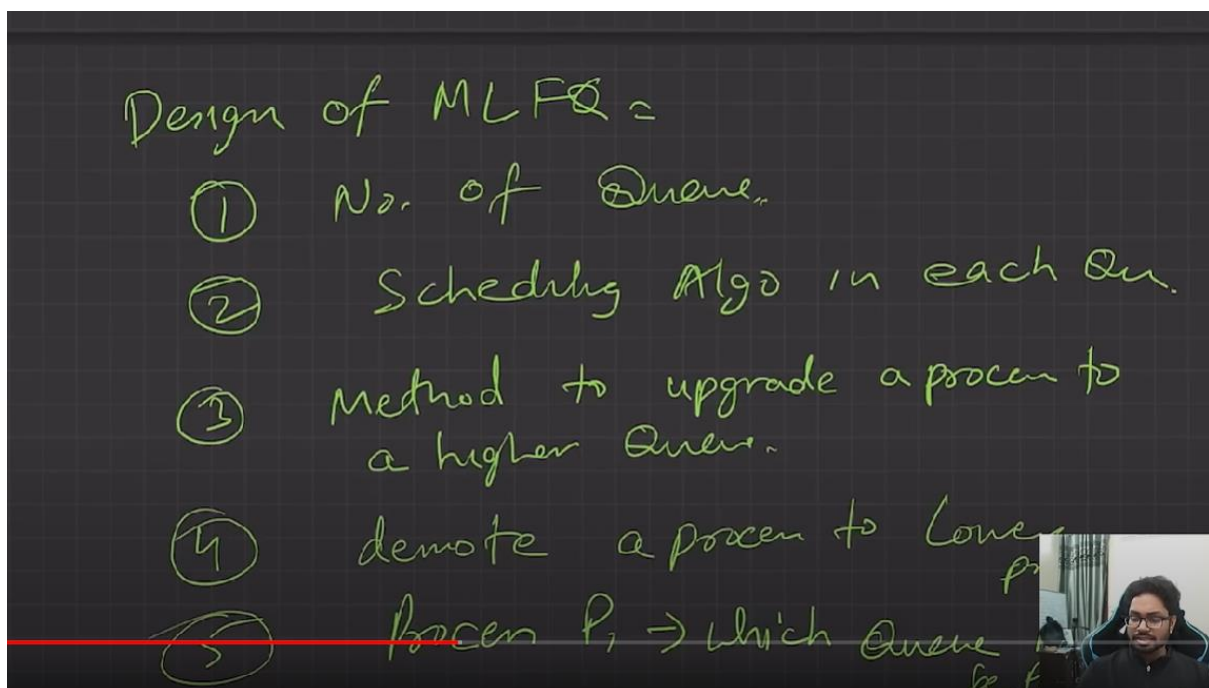 Design of MLFQ =
① No. of Queue.
② Scheduling Algo in each Qu.
③ Method to upgrade a process to
a higher Queue.
④ demote a process to Lower
⑤ Process P₁ → which Queue